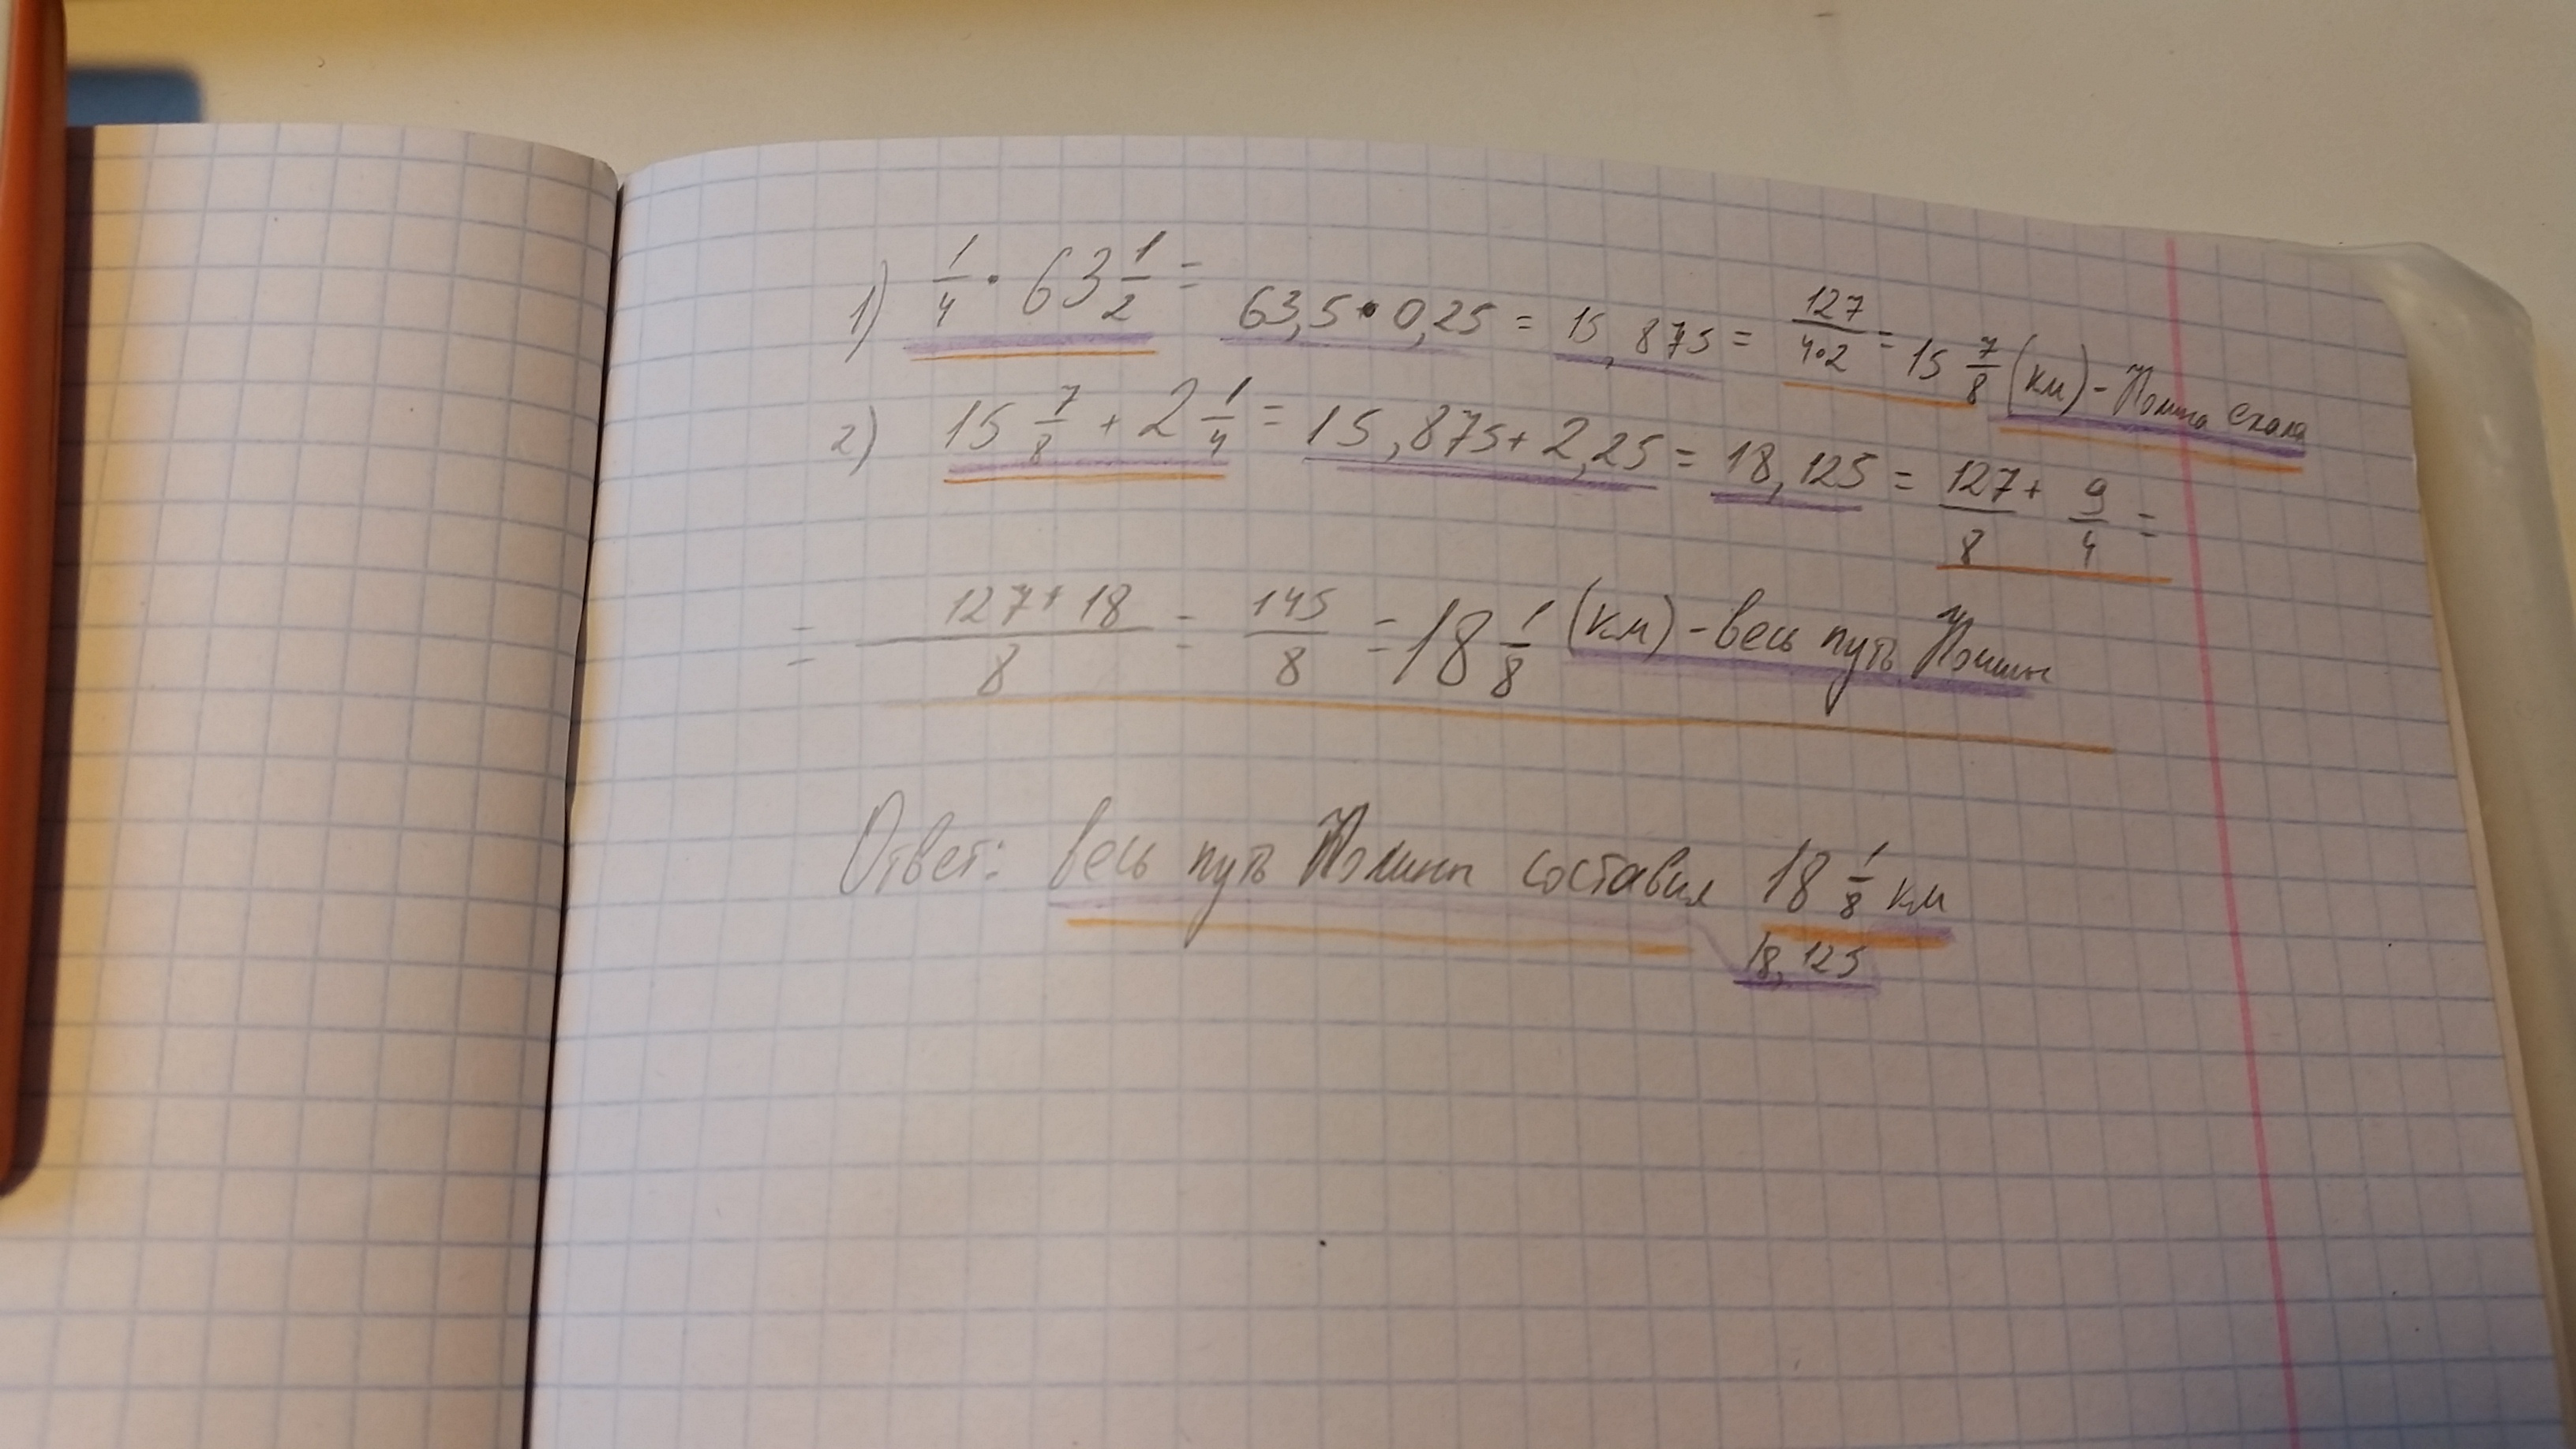 1) 1/4 · 63 1/2 = 63,5 · 0,25 = 15,875 = 127/4·2 = 15 7/8 (км) - Полина ехала
2) 15 7/8 + 2 1/4 = 15,875 + 2,25 = 18,125 = 127/8 + 9/4 =
= 127+18/8 = 145/8 = 18 1/8 (км) - весь путь Полины
Ответ: весь путь Полины составил 18 1/8 км
18,125